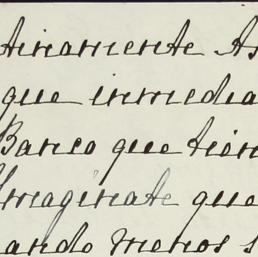 tinamente As
que inmedia
Banco que tien
Imaginate que
ando menos s